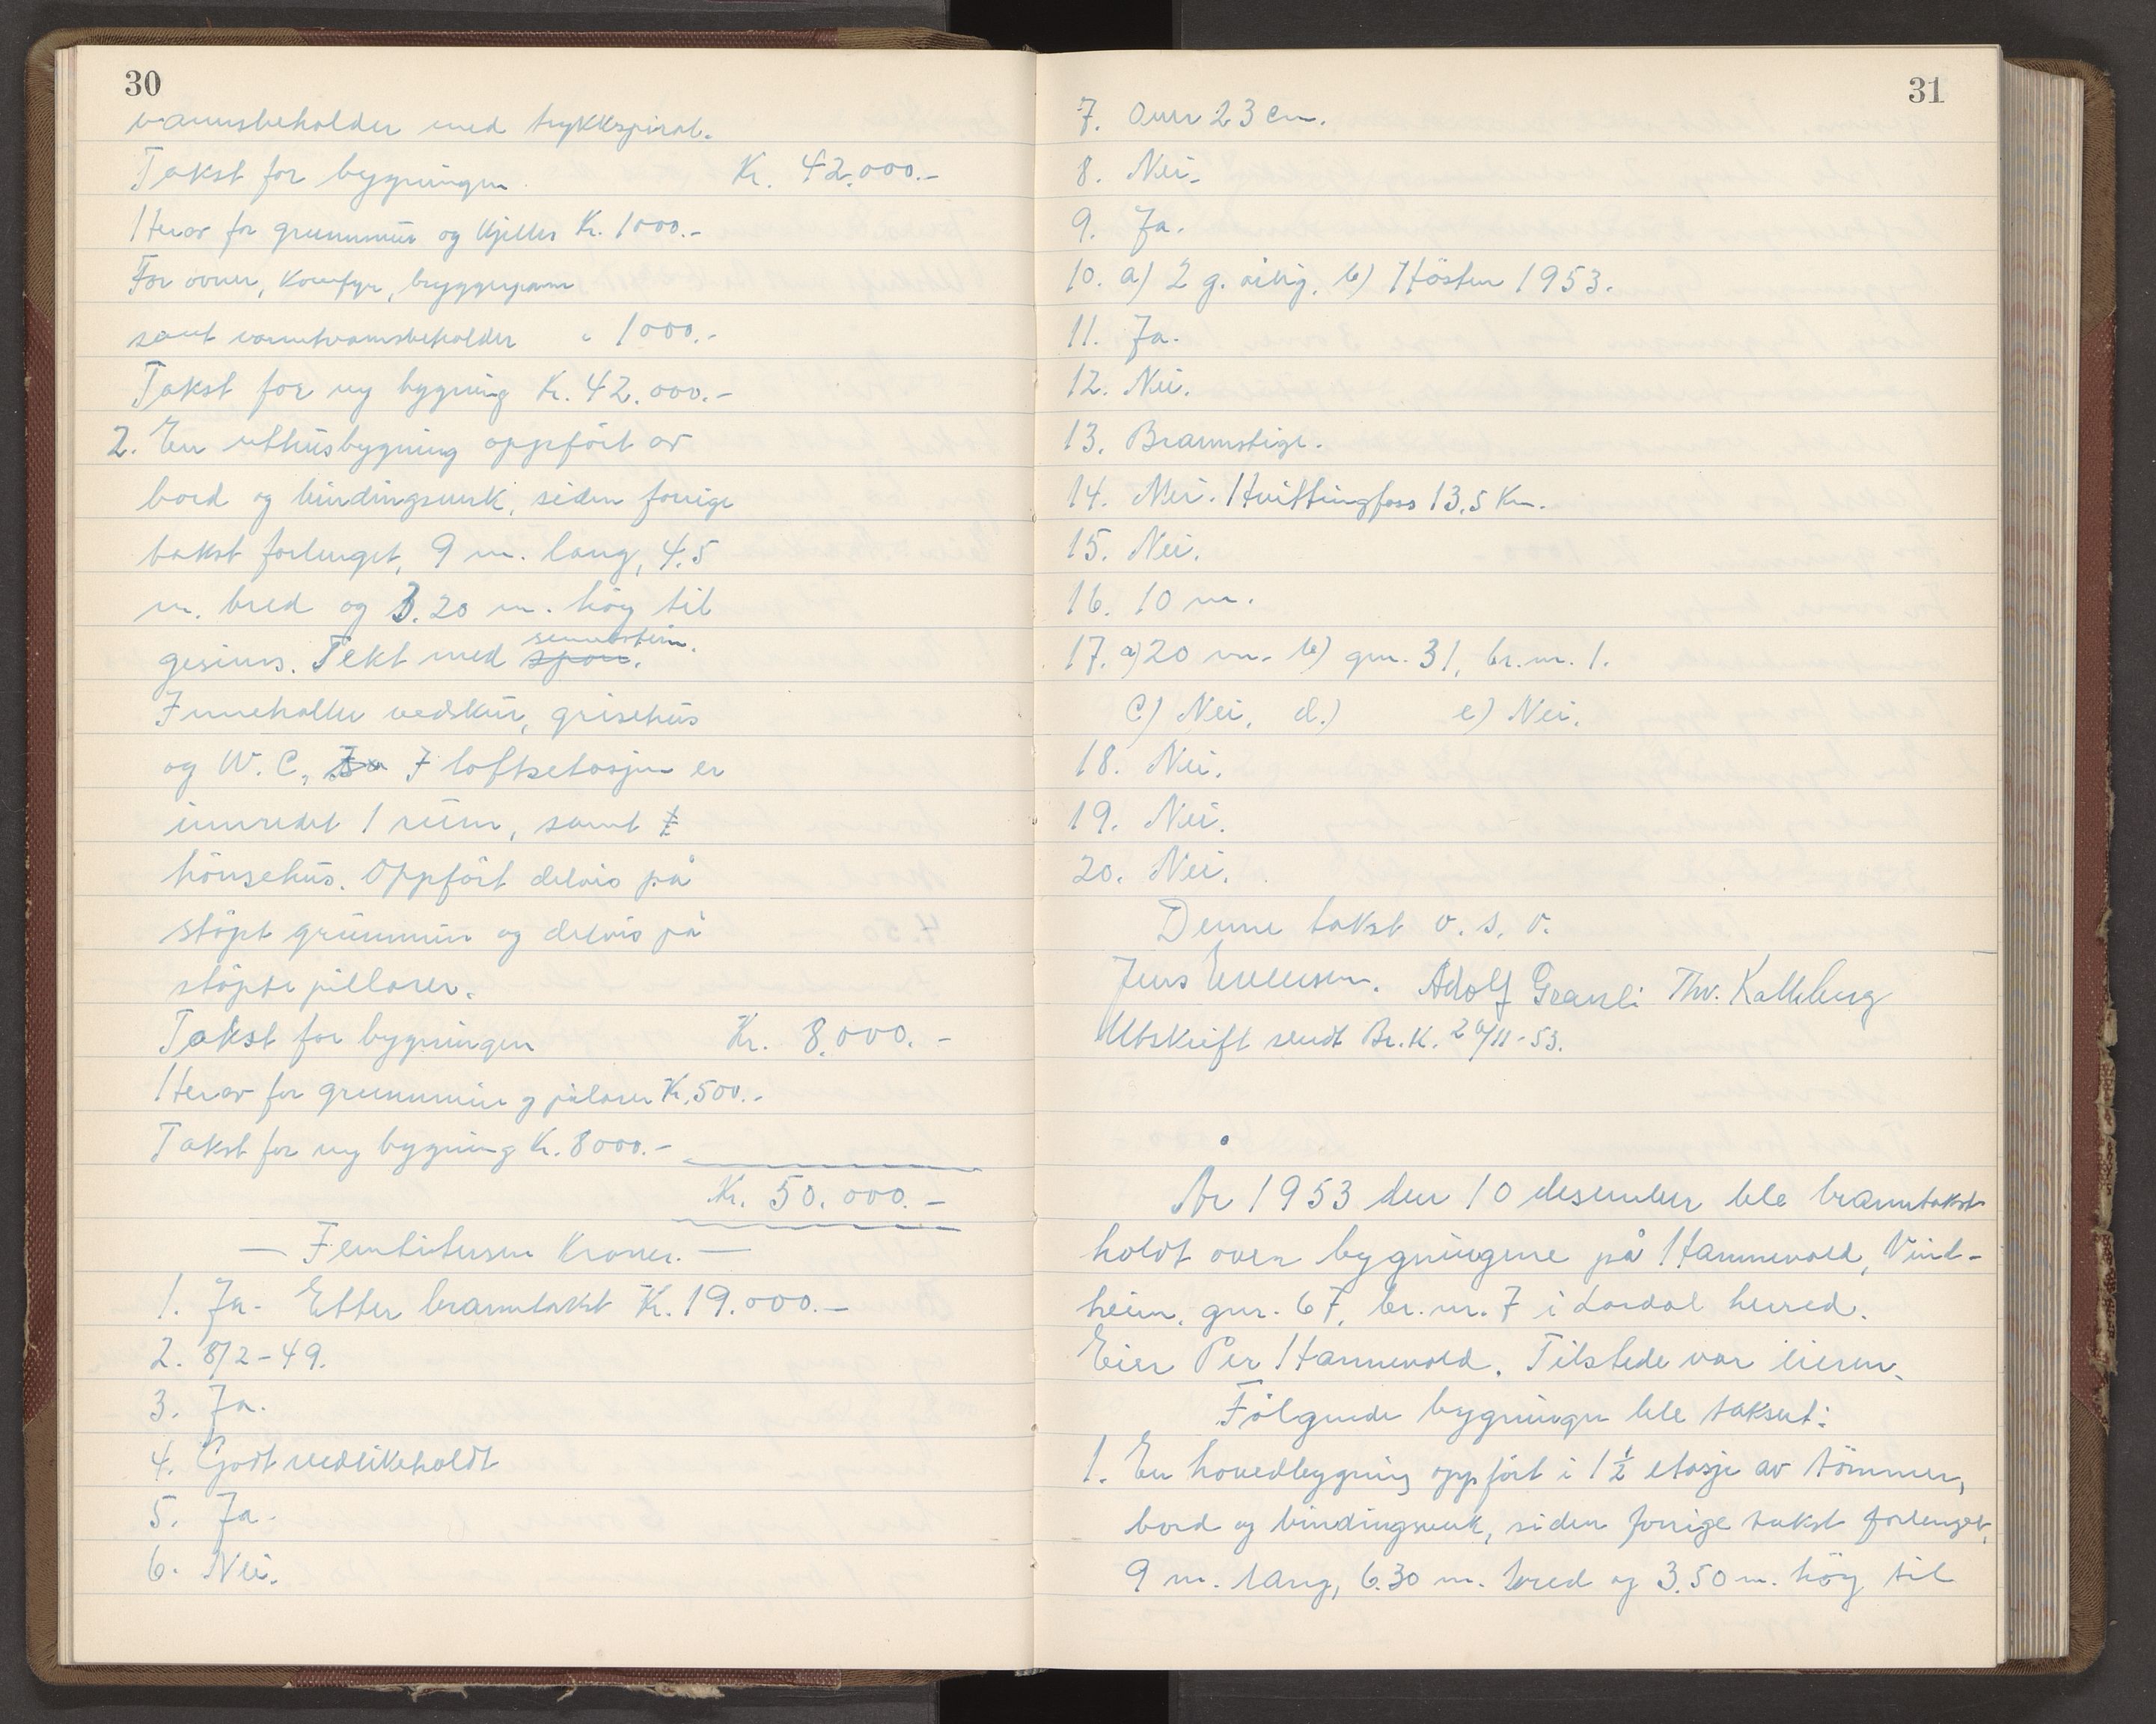 30
vannsbeholder med trykkspiral.
Takst for bygningen Kr. 42.000.-
Herav for grunnmur og kjeller Kr. 1000.-
For ovner, komfyr, bryggepanne
samt varmtvannsbeholder " 1000.-
Takst for ny bygning Kr. 42.000.-
2. En uthusbygning oppført av
bord og bindingsverk, siden forrige
takst forlenget, 9 m. lang, 4.5
m. bred og 3.20 m. høy til
sementstein.
gesims. Tekt med spon.
Inneholder vedskur, grisehus
og W.C., I loftsetasjen er
innredet 1 rum, samt
hønsehus. Oppført delvis på
støpt grunnmur og delvis på
støpte pillarer.
Takst for bygningen Kr. 8.000.-
Herav for grunnmur og pilarer Kr. 500.-
Takst for ny bygning Kr. 8000.-
Kr. 50.000.-
— Femtitusen Kroner. —
1. Ja. Etter branntakst Kr. 19.000.-
2. 8/2-49.
3. Ja.
4. Godt vedlikeholdt
5. Ja.
6. Nei.
31
7. Over 23 cm.
8. Nei.
9. Ja.
10. a) 2 g. årlig. b) Høsten 1953.
11. Ja.
12. Nei.
13. Brannstige.
14. Nei. Hvittingfoss 13.5 Km.
15. Nei.
16. 10 m.
17. a) 20 m. b) gnr. 31, br.nr. 1.
c) Nei. d.) e) Nei.
18. Nei.
19. Nei.
20. Nei.
Denne takst o. s. v.
Jens Evensen. Adolf Granli Thv. Kalleberg
Utskrift sendt Br.K. 20/11-53.
År 1953 den 10 desember ble branntakst
holdt over bygningene på Hannevold, Vind-
heim, gnr. 67, br.nr. 7 i Lardal herred.
Eier Per Hannevold. Tilstede var eieren.
Følgende bygninger ble taksert:
1. En hovedbygning oppført i 1 1/2 etasje av tømmer,
bord og bindingsverk, siden forrige takst forlenget,
9 m. lang, 6.30 m. bred og 3.50 m. høy til